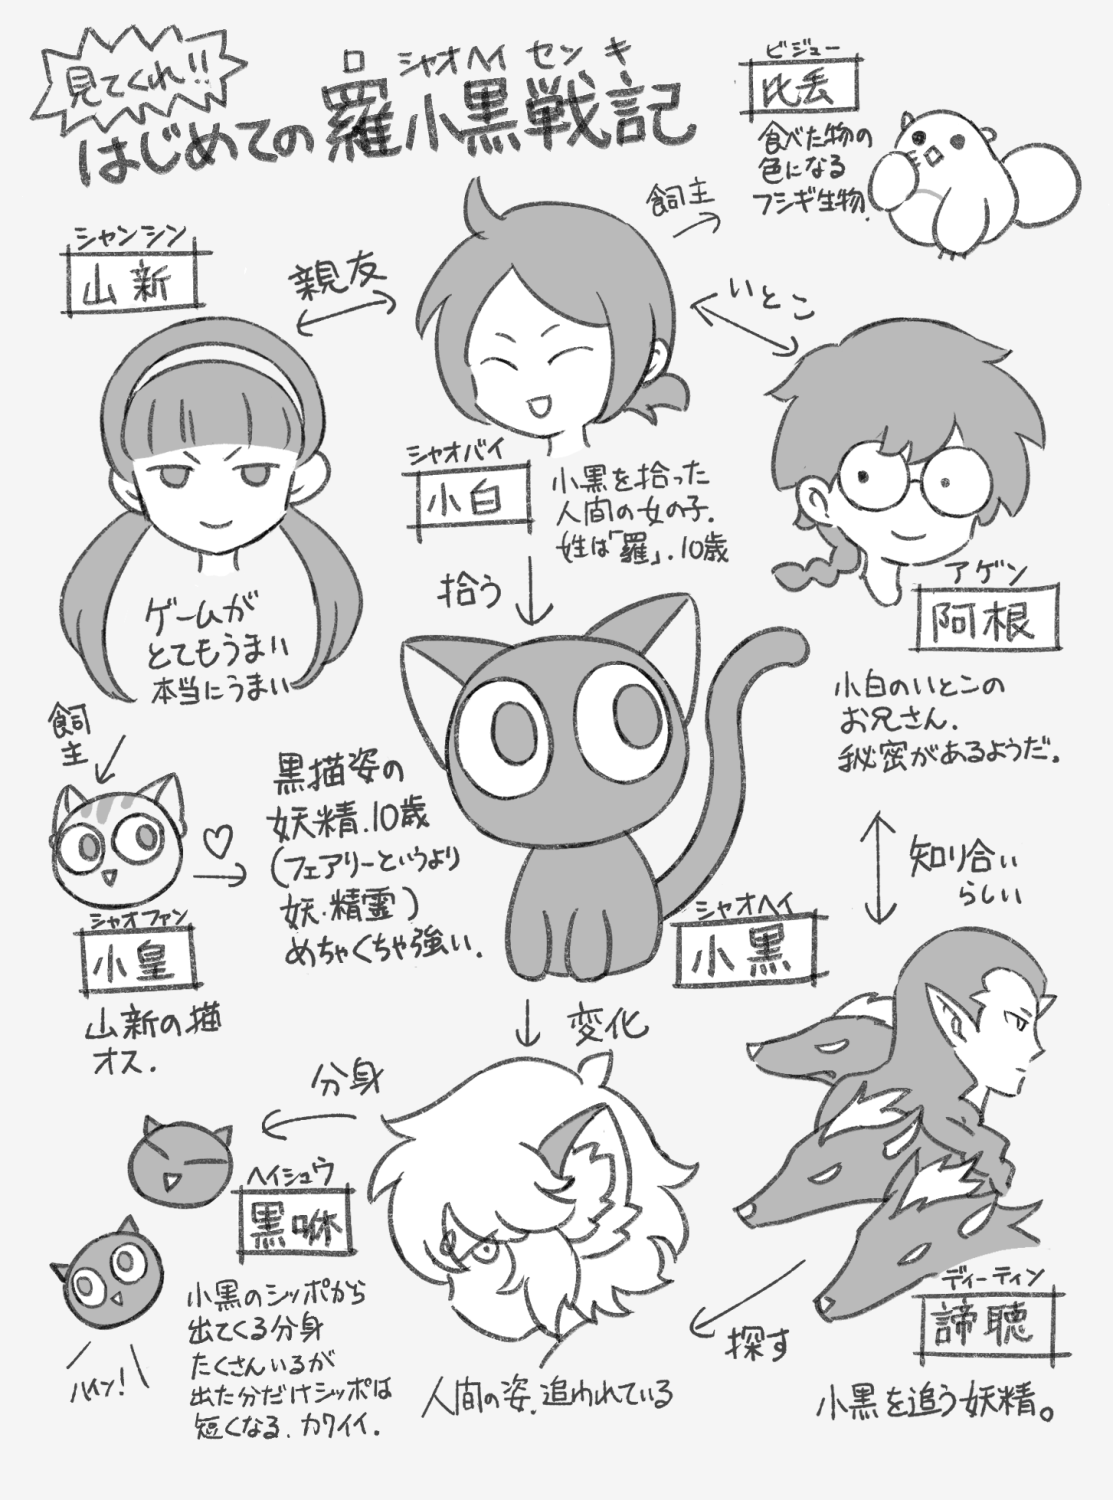 見てくれ!!
はじめての羅小黒戦記
ロ シャオヘイ センキ
ビジュー
比丢
食べた物の
色になる
フシギ生物.
飼主
シャンシン
山新
親友
いとこ
シャオバイ
小白
小黒を拾った
人間の女の子.
姓は「羅」.10歳
拾う
アゲン
阿根
小白のいとこの
お兄さん.
秘密があるようだ。
ゲームが
とてもうまい
本当にうまい
飼
主
シャオファン
小皇
山新の猫
オス.
黒猫姿の
妖精.10歳
(フェアリーというより
妖・精霊)
めちゃくちゃ強い.
シャオヘイ
小黒
知り合い
らしい
変化
分身
ヘイシュウ
黒咻
小黒のシッポから
出てくる分身
たくさんいるが
出た分だけシッポは
短くなる.カワイイ.
ハイン!
人間の姿.追われている
探す
ディーティン
諦聴
小黒を追う妖精。